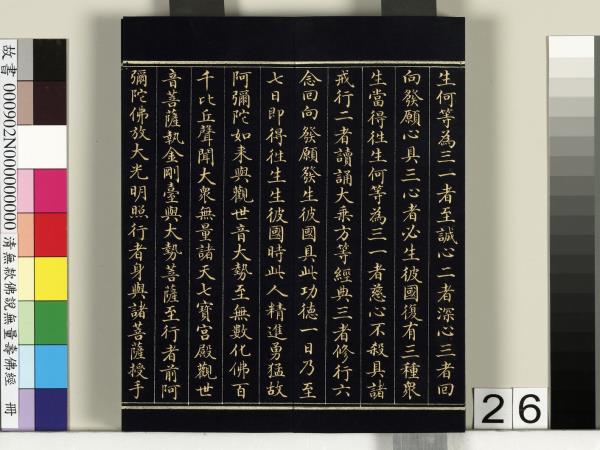 生何等為三一者至誠心二者深心三者回
向發願心具三心者必生彼國復有三種衆
生當得徃生何等為三一者慈心不殺具諸
戒行二者讀誦大乗方等經典三者修行六
念回向發願發生彼國具此功德一日乃至
七日即得徃生生彼國時此人精進勇猛故
阿彌陀如来與觀世音大勢至無數化佛百
千比丘聲聞大衆無量諸天七寳宮殿觀世
音菩薩執金剛臺與大勢菩薩至行者前阿
彌陀佛放大光明照行者身與諸菩薩授手
故書 000902N000000000 清無款佛說無量壽佛經 冊
26